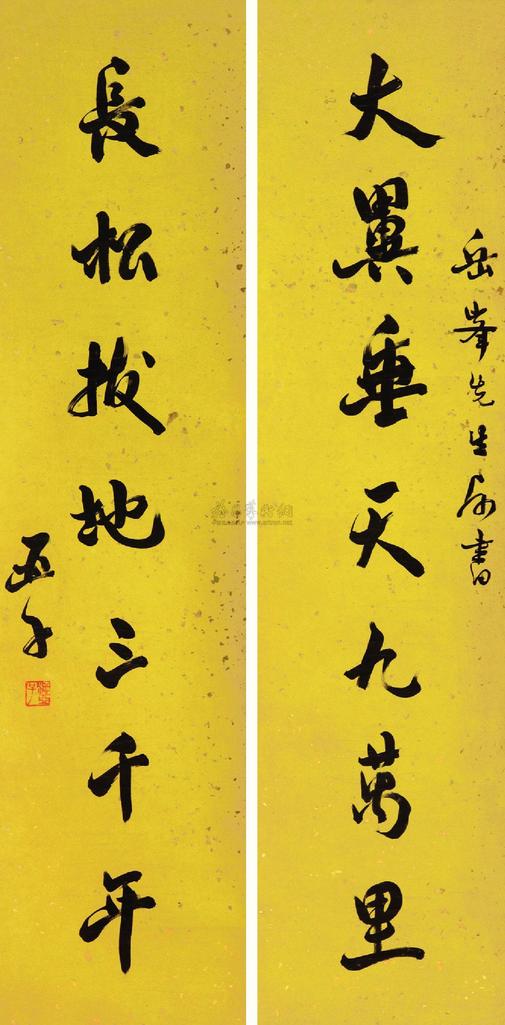 岳峯先生屬書
大翼垂天九萬里
長松拔地三千年